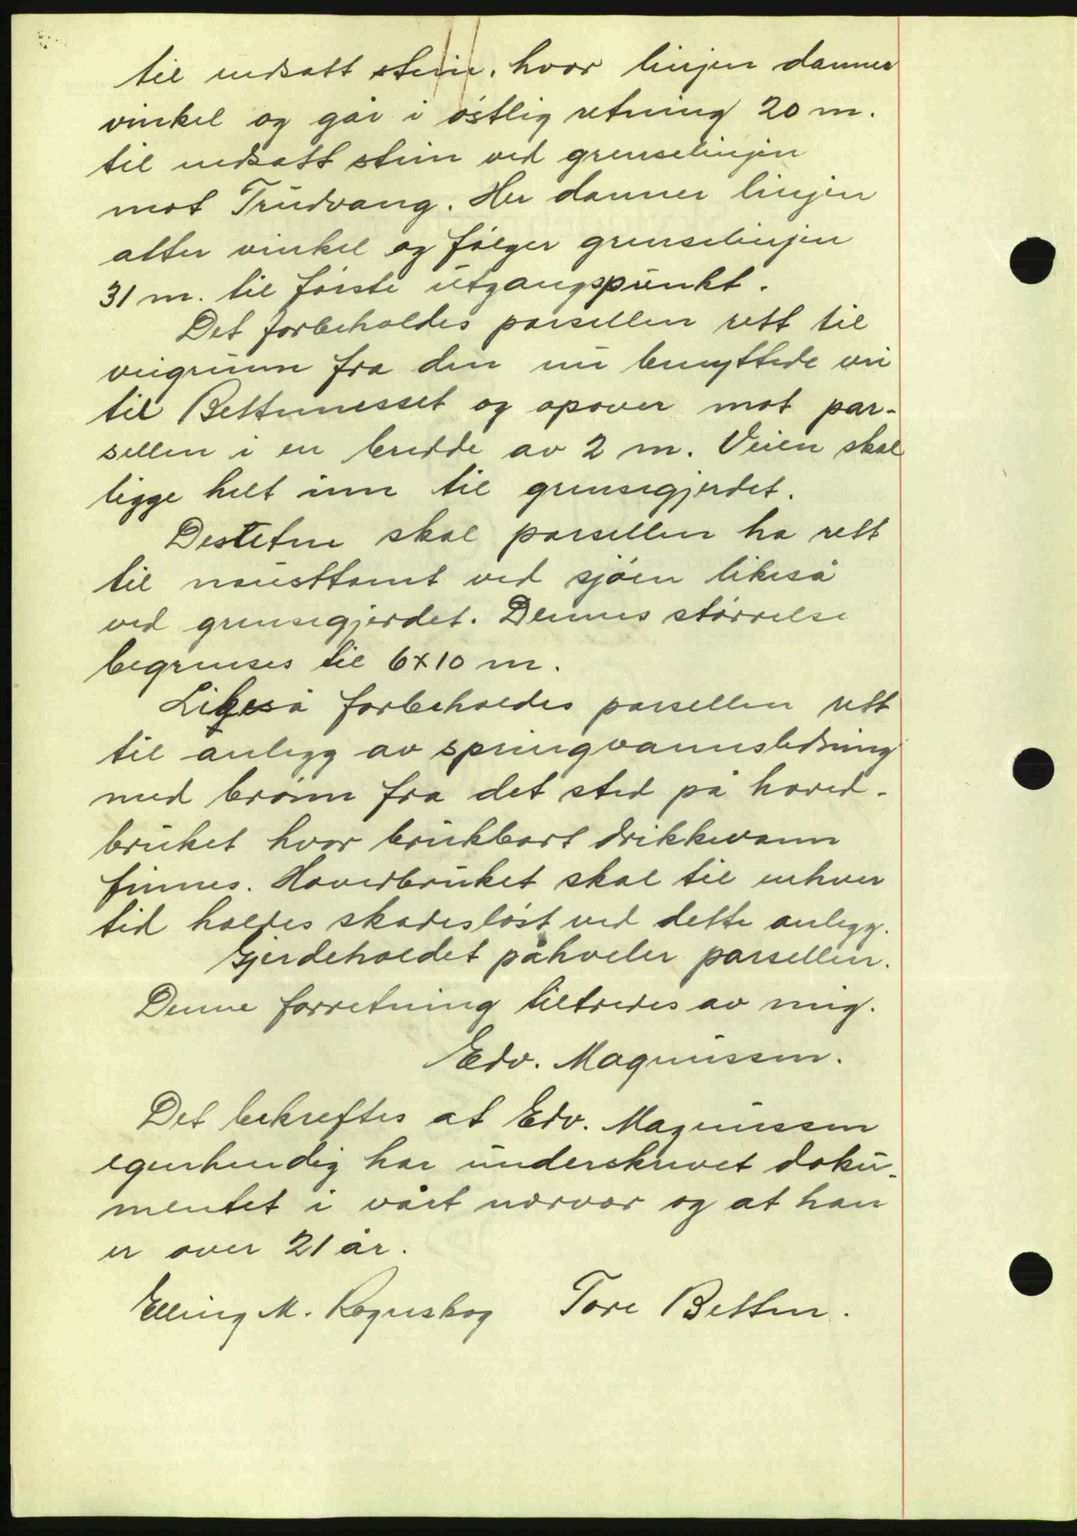 til nedsatt stein, hvor linjen danner
vinkel og går i östlig retning 20 m.
til nedsatt stein ved grenselinjen
mot Trudvang. Her danner linjen
atter vinkel og fölger grenselinjen
31 m. til förste utgangspunkt.
Det forbeholdes parsellen rett til
veigrunn fra den nu benyttede vei
til Bettenesset og opover mot par-
sellen i en bredde av 2 m. Veien skal
ligge helt inn til grensegjerdet.
Desuten skal parsellen ha rett
til nausttomt ved sjöen likeså
ved grensegjerdet. Dennes störrelse
begrenses til 6x10 m.
Likeså forbeholdes parsellen rett
til anlegg av springvannsledning
med brönn fra det sted på hoved-
bruket hvor brukbart drikkevann
finnes. Hoverbruket skal til enhver
tid holdes skadeslöst ved dette anlegg.
Gjerdeholdet påhveler parsellen.
Denne forretning tiltredes av mig.
Edv. Magnussen.
Det bekreftes at Edv. Magnussen
egenhendig har underskrevet doku-
mentet i vårt nærvær og at han
er over 21 år.
Elling M. Rognskog Tore Betten.